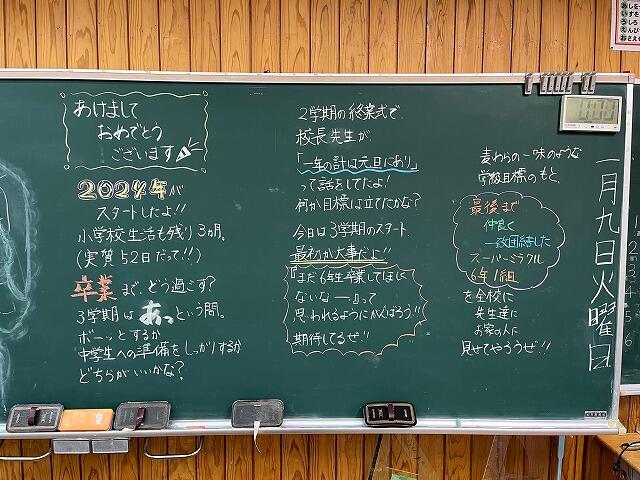 あけまして
おめでとう
ございます
2024年が
スタートしたよ!!
小学校生活も残り3ヵ月。
(実質52日だって!!)
卒業まで、どう過ごす?
3学期はあっという間。
ボーッとするか
中学生への準備をしっかりするか
どちらがいいかな?
2学期の終業式で
校長先生が、
「一年の計は元旦にあり」
って話をしてたよ!
何か目標は立てたかな?
今日は3学期のスタート
最初が大事だよ!!
『まだ6年生卒業してほしく
ないな―』って
思われるようにがんばろう!!
期待してるぜ!!
麦わらの一味のような
学級目標のもと、
最後まで
仲良く
一致団結した
スーパーミラクル
6年1組
を全校に
先生達に
お家の人に
見せてやろうぜ!!
一月九日火曜日